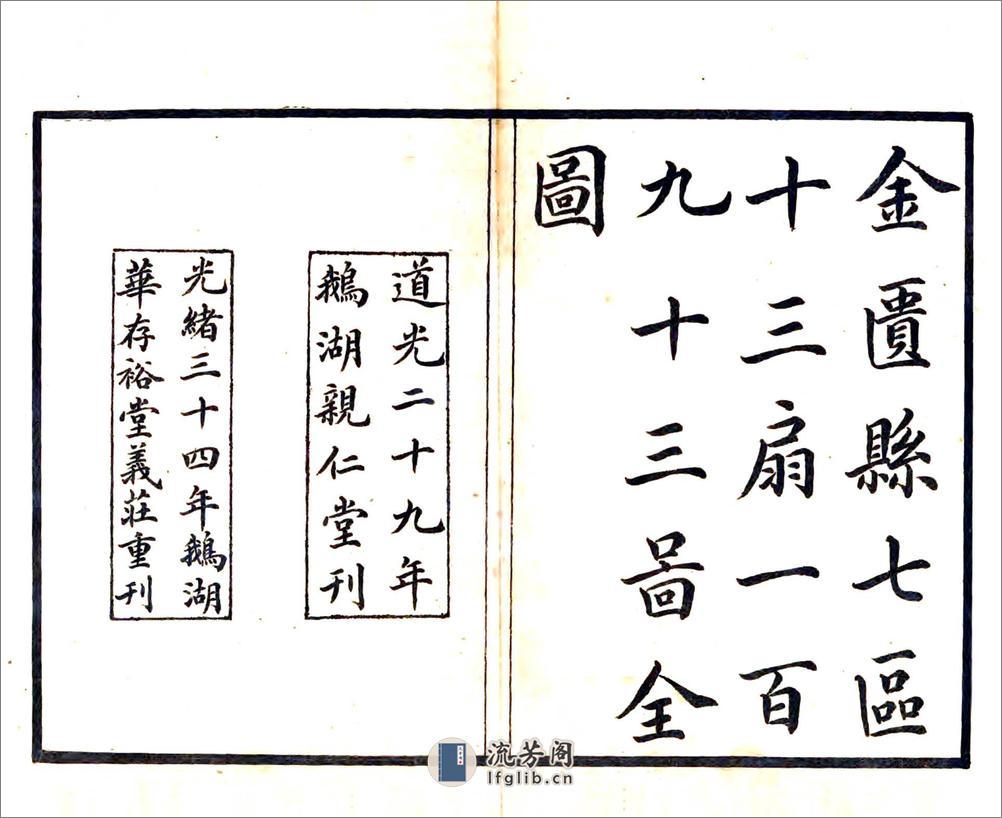 金匱縣七區
十三扇一百
九十三啚全
圖
道光二十九年
鵝湖親仁堂刊
光緒三十四年鵝湖
華存裕堂義莊重刊
流芳阁
lfglib.cn